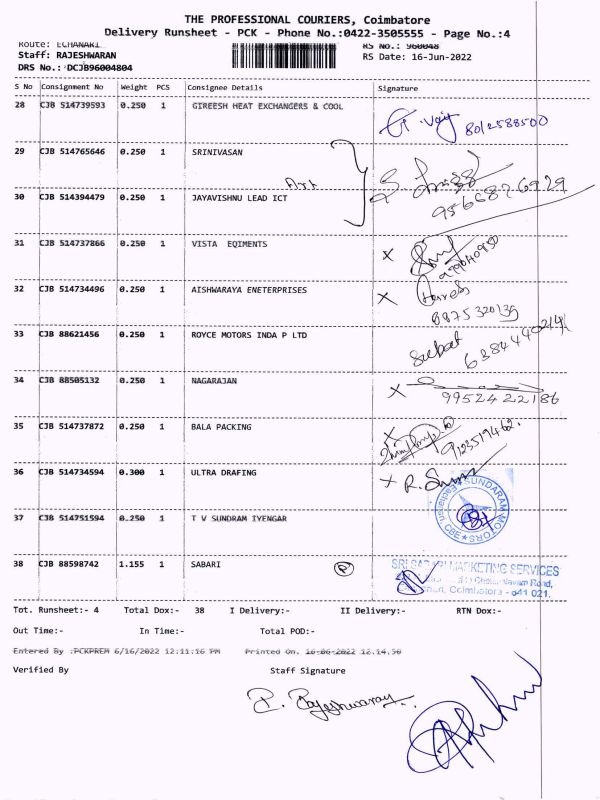 THE PROFESSIONAL COURIERS, Coimbatore
Delivery Runsheet - PCK - Phone No.:0422-3505555 - Page No.:4
Route: ECHANARI RS No.: 960048
Staff: RAJESHWARAN RS Date: 16-Jun-2022
DRS No.: DCJB96004804
S No Consignment No Weight PCS Consignee Details Signature
28 CJB 514739593 0.250 1 GIREESH HEAT EXCHANGERS & COOL
8012588500
29 CJB 514765646 0.250 1 SRINIVASAN
30 CJB 514394479 0.250 1 JAYAVISHNU LEAD ICT
9566876929
31 CJB 514737866 0.250 1 VISTA EQIMENTS
32 CJB 514734496 0.250 1 AISHWARAYA ENETERPRISES
33 CJB 88621456 0.250 1 ROYCE MOTORS INDA P LTD
34 CJB 88505132 0.250 1 NAGARAJAN
9952422186
35 CJB 514737872 0.250 1 BALA PACKING
36 CJB 514734594 0.300 1 ULTRA DRAFING
37 CJB 514751594 0.250 1 T V SUNDRAM IYENGAR
SUNDARAM MOTORS CBE
38 CJB 88598742 1.155 1 SABARI P
MARKETING SERVICES
Road,
Coimbatore - 641 021.
Tot. Runsheet:- 4 Total Dox:- 38 I Delivery:- II Delivery:- RTN Dox:-
Out Time:- In Time:- Total POD:-
Entered By :PCKPREM 6/16/2022 12:11:16 PM Printed On. 16-06-2022 12.14.50
Verified By Staff Signature
P. Rajeshwaran